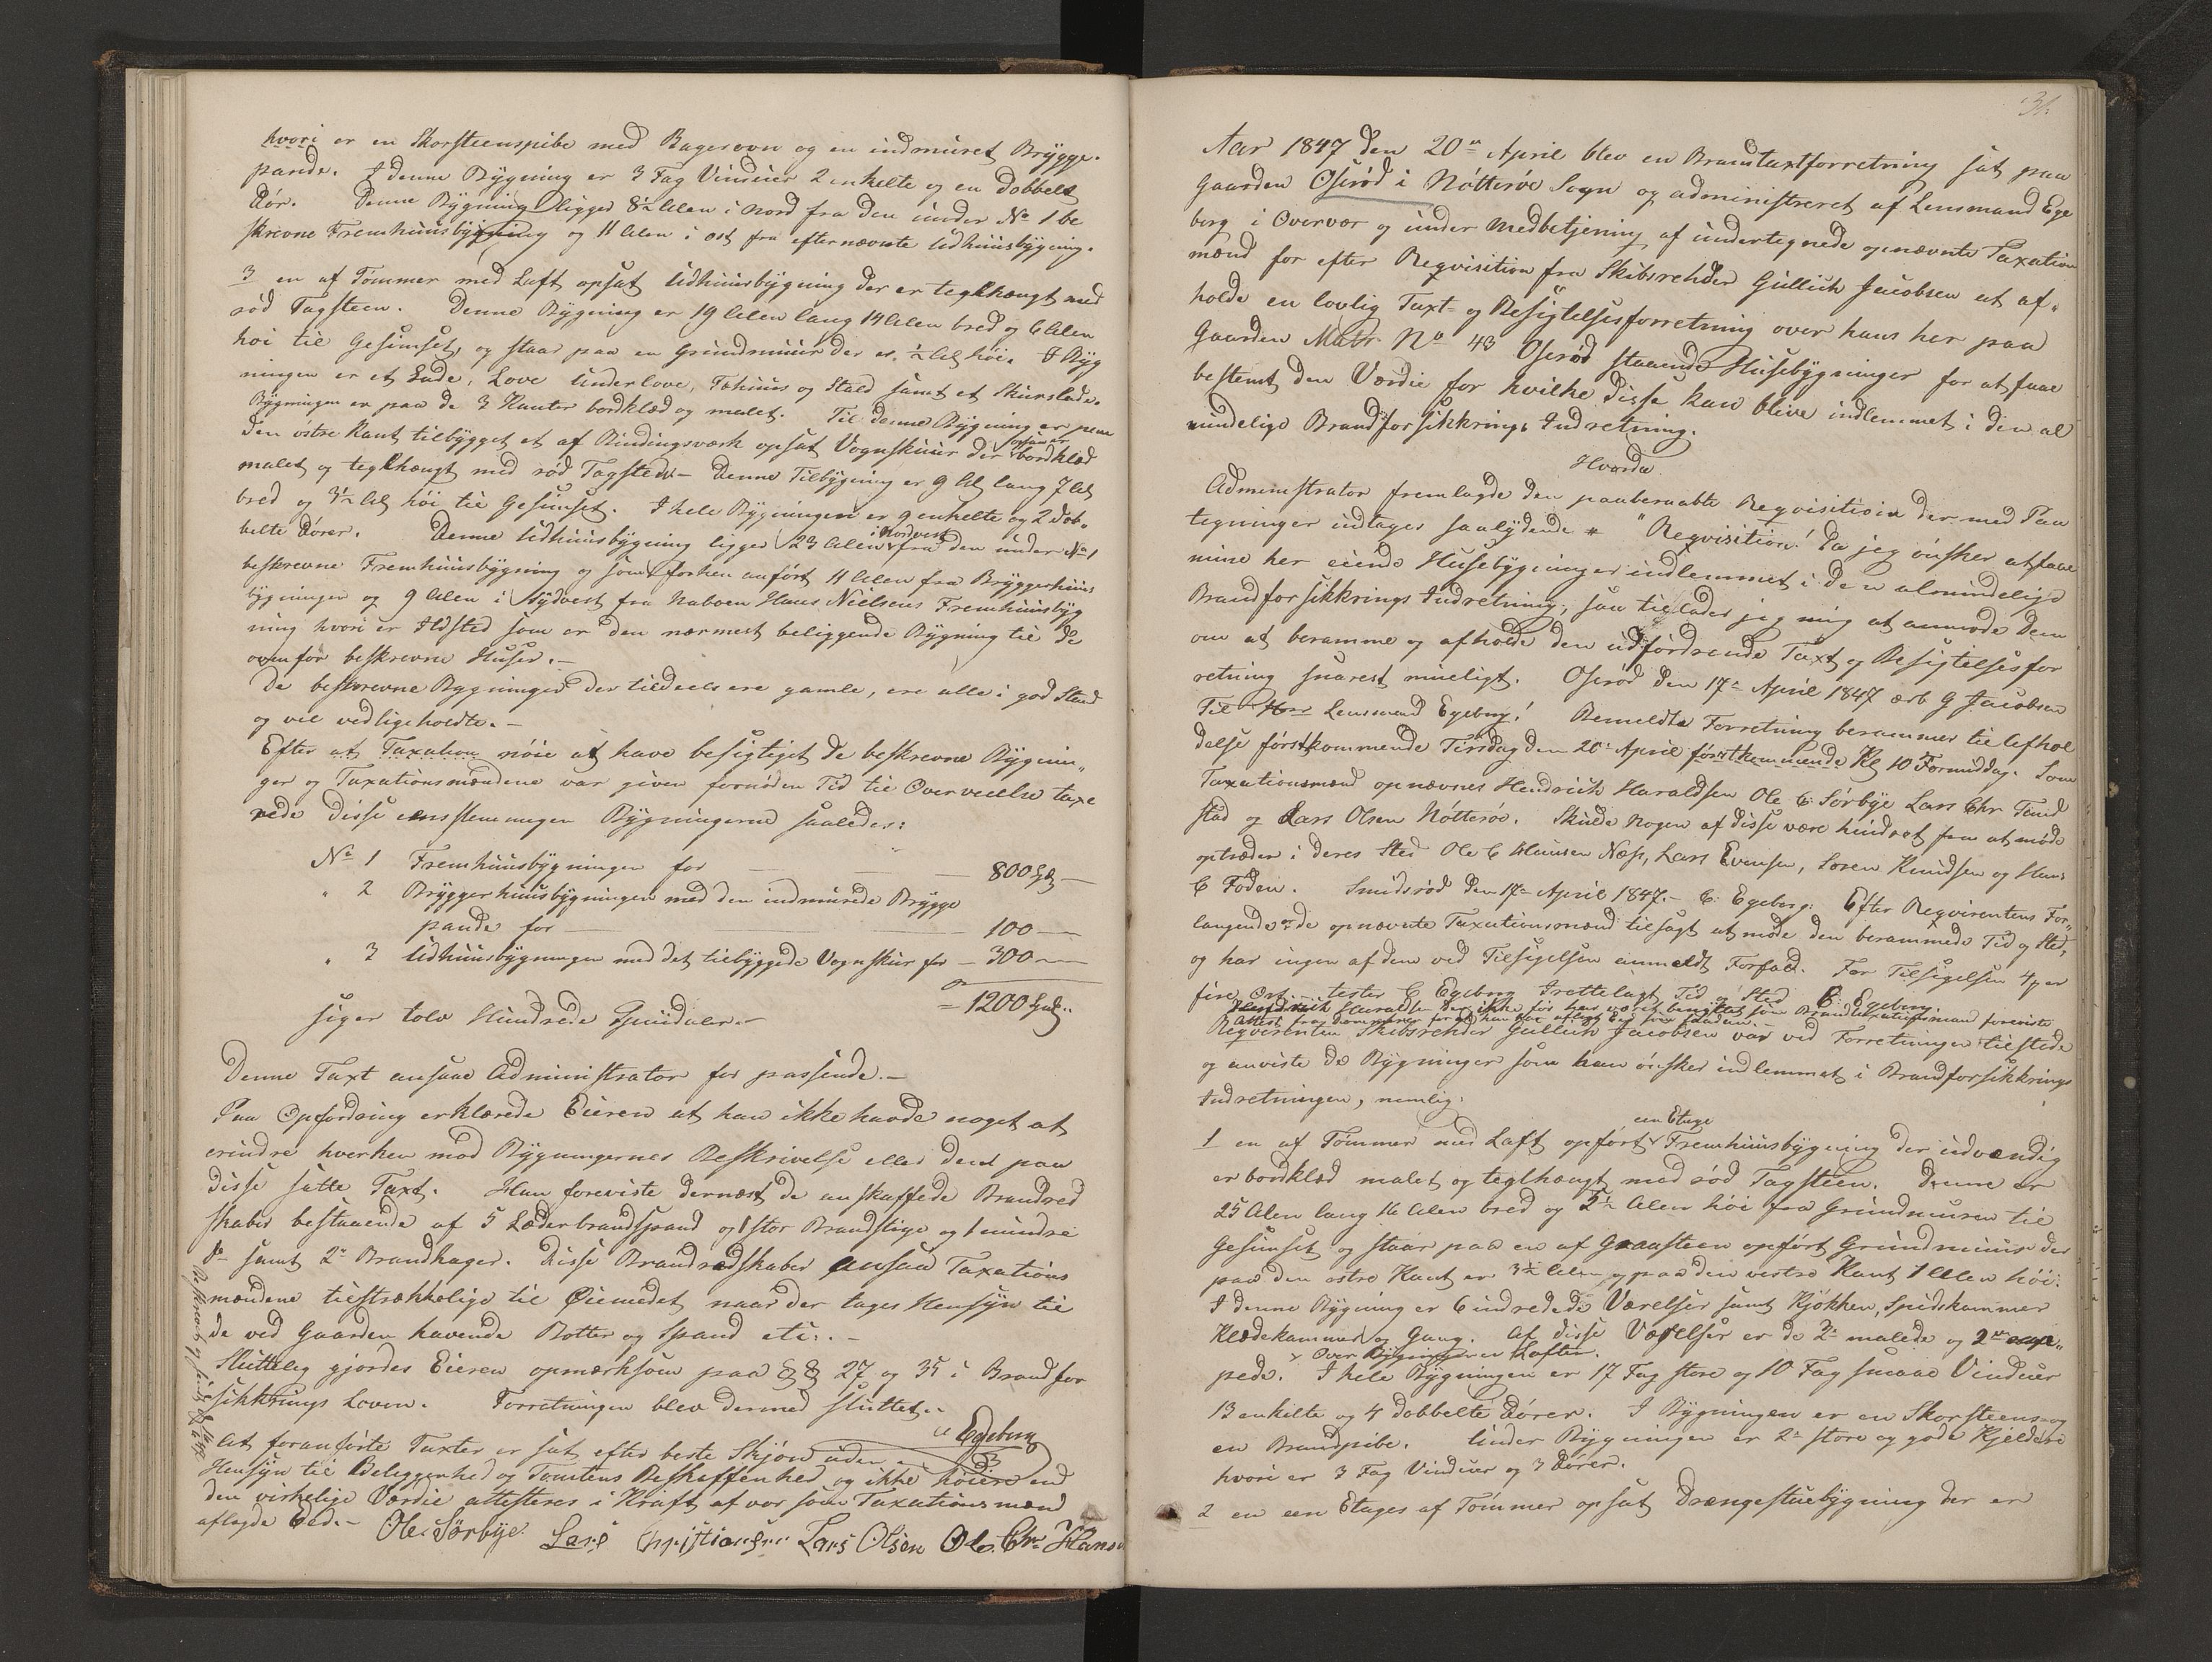 hvori er en Skorsteenspibe med Bagerovn og en indmuret Brygge-
pande. I denne Bygning er 3 Fag Vinduer 2 enkelte og en dobbelt
Dør. Denne Bygning ligger 8½ Alen i Nord fra den under No 1 be
skrevne Fremhuusbygning og 11 Alen i Ost fra efternævnte Udhuusbygning.
3 en af Tømmer med Loft opsat Udhuusbygning der er teglhængt med
rød Tagsteen. Denne Bygning er 19 Alen lang 14 Alen bred og 6 Alen
høi til Gesimset, og staar paa en Grundmuur der er ½ Al høi. I Byg
ningen er et Lade, Love Underlove, Fæhuus og Stald samt et Skurslade.
Bygningen er paa de 3 Kanter bordklæd og malet. Til denne Bygning er paa
den østre Kant tilbygget et af Bindingsværk opsat Vognskuur der ogsaa er bordklæd
malet og teglhængt med rød Tagsteen - Denne Tilbygning er 9 Al lang 7 Al
bred og 3½ Al høi til Gesimset. I hele Bygningen er 9 enkelte og 2 dob-
belte Dører. Denne Udhuusbygning ligger 23 Alen i Nordvest fra den under No 1
beskrevne Fremhuusbygning og som forhen anført 11 Alen fra Bryggerhuus
bygningen og 9 Alen i Sydvest fra Naboen Hans Nielsens Fremhuusbyg
ning hvori er Ildsted som er den nærmest beliggende Bygning til de
ovenfor beskrevne Huser.-
De beskrevne Bygninger der tildeels ere gamle, ere alle i god Stand
og vel vedligeholdte.-
Efter at Taxation nøie at have besigtiget de beskrevne Bygnin-
ger og Taxationsmændene var given fornøden Tid til Overveielse taxe
rede disse eensstemmigen Bygningerne saaledes:
No 1 Fremhuusbygningen for 800 Spd
" 2 Bryggerhuusbygningen med den indmurede Brygge
pande for 100
" 3 Udhuusbygningen med det tilbyggede Vognskur for 300
= 1200 Spd.
siger tolv Hundrede Speciedaler.-
Denne Taxt ansaae Administrator for passende.-
Paa Opfordring erklærede Eieren at han ikke havde noget at
erindre hverken mod Bygningernes Beskrivelse eller den paa
disse satte Taxt. Han foreviste dernæst de anskaffede Brandred
skaber bestaaende af 5 Læderbrandspand og 1 stor Brandstige og 1 mindre
do samt 2de Brandhager. Disse Brandredskaber ansaa Taxations
mændene tilstrækkelige til Øiemedet naar der tages Hensyn til
de ved Gaarden havende Bøtter og Spand etc. -
Sluttelig gjordes Eieren opmærksom paa §§ 27 og 35 i Brandfor
sikkrings Loven. Forretningen blev dermed sluttet.-
Egeberg
At foranførte Taxter er sat efter beste Skjøn uden
Hensyn til Beliggenhed og Tomtens Beskaffenhed og ikke høiere end
den virkelige Værdie attesteres i Kraft af vor som Taxationsmænd
aflagde Eed.- Ole Sørbye. Lars Christiansen Lars Olsen Ole Chr Hansen
Aar 1847 den 20de April blev en Brandtaxtforretning sat paa
Gaarden Oserød i Nøtterøe Sogn og administreret af Lensmand Ege
berg i Overvær og under Medbetjening af undertegnede opnævnte Taxation
mænd for efter Reqvisition fra Skibsrehder Gullich Jacobsen at af-
holde en lovlig Taxt- og Besigtelsesforretning over hans her paa
Gaarden Matr No 43 Oserød staaende Husebygninger for at faae
bestemt den Værdie for hvilke disse kan blive indlemmet i den al
mindelige Brandforsikkrings Indretning.
Hvorda
Administrator fremlagde den paaberaabte Reqvisition der med Paa
tegninger indtages saalydende "Reqvisition! Da jeg ønsker at faae
mine her eiende Husebygninger indlemmet i den almindelige
Brandforsikkrings Indretning, saa tillader jeg mig at anmode Dem
om at beramme og afholde den udfordrende Taxt og Besigtelsesfor
retning snarest mueligt. Oserød den 17de April 1847 ærb G Jacobsen
Til Hr Lensmand Egeberg! Bemeldte Forretning berammes til Afhol
delse førstkommende Tirsdag den 20de April førstkommende Kl 10 Formiddag. Som
Taxationsmænd opnævnes Hendrich Haraldsen Ole C. Sørbye Lars Chr. Tand
stad og Lars Olsen Nøtterøe. Skulde nogen af disse være hindret fra at møde
optræder i deres Sted Ole C Hansen Næss, Lars Evensen, Soren Knudsen og Hans
C Foden. Smidsrød den 17de April 1847.- C. Egeberg. Efter Reqvirentens For-
langende er de opnævnte Taxationsmænd tilsagt at møde den berammede Tid og Sted,
og har ingen af dem ved Tilsigelsen anmeldt Forfald. For Tilsigelsen 4 er
fire Ort tester C Egeberg Irettelagt Tid og Sted C. Egeberg
Hendrich Haraldsen der ikke før har været benyttet som Brandtaxationsmand foreviste
Attest fra Sorenskriver for at han har aflagt Eed som saadan.
Reqvirenten Skibsrehder Gullich Jacobsen var ved Forretningen tilstede
og anviste de Bygninger som han ønsker indlemmet i Brandforsikkrings
Indretningen, nemlig:
1 en af Tømmer med Loft opført een Etage Fremhuusbygning der udvendig
er bordklæd malet og teglhængt med rød Tagsteen. Denne er
25 Alen lang 16 Alen bred og 5½ Alen høi fra Grundmuren til
Gesimset og staar paa en af Graasteen opført Grundmuur der
paa den østre Kant er 3½ Alen og paa den vestre Kant 1 Alen høi.
I denne Bygning er 6 indredede Værelser samt Kjøkken, Spidskammer
Klædekammer og Gang. Af disse Værelser er de 2de malede og 2de tape-
pede. Over Bygningen er Loften. I hele Bygningen er 17 Fag store og 10 Fag smaae Vinduer
13 enkelte og 4 dobbelte Dører. I Bygningen er en Skorsteens- og
en Brandpibe. Under Bygningen er 2de store og gode Kjeldere
hvori er 3 Fag Vinduer og 3 Dører.
2 en een Etages af Tømmer opsat Drængestuebygning der er